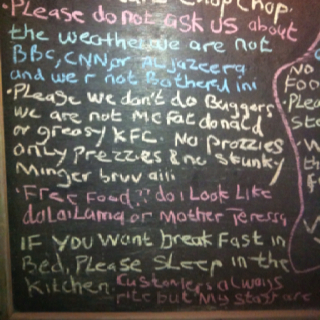 Chop Chop.
• Please do not ask us about
the weather we are not
BBC, CNN or Aljazeera
and we r not Bothered ini
• Please we don't do Buggers
we are not McFatdonald
or greasy KFC. No prozzies
only Prezzies & no skunky
Minger bruv aiii
• Free Food?? do i Look Like
dalaiLama or Mother Teressa
IF YOU Want breakFast in
Bed, Please Sleep in the
Kitchen. Customers always
rite but My Staff are
No
Foo
Plea
Sto
W
th